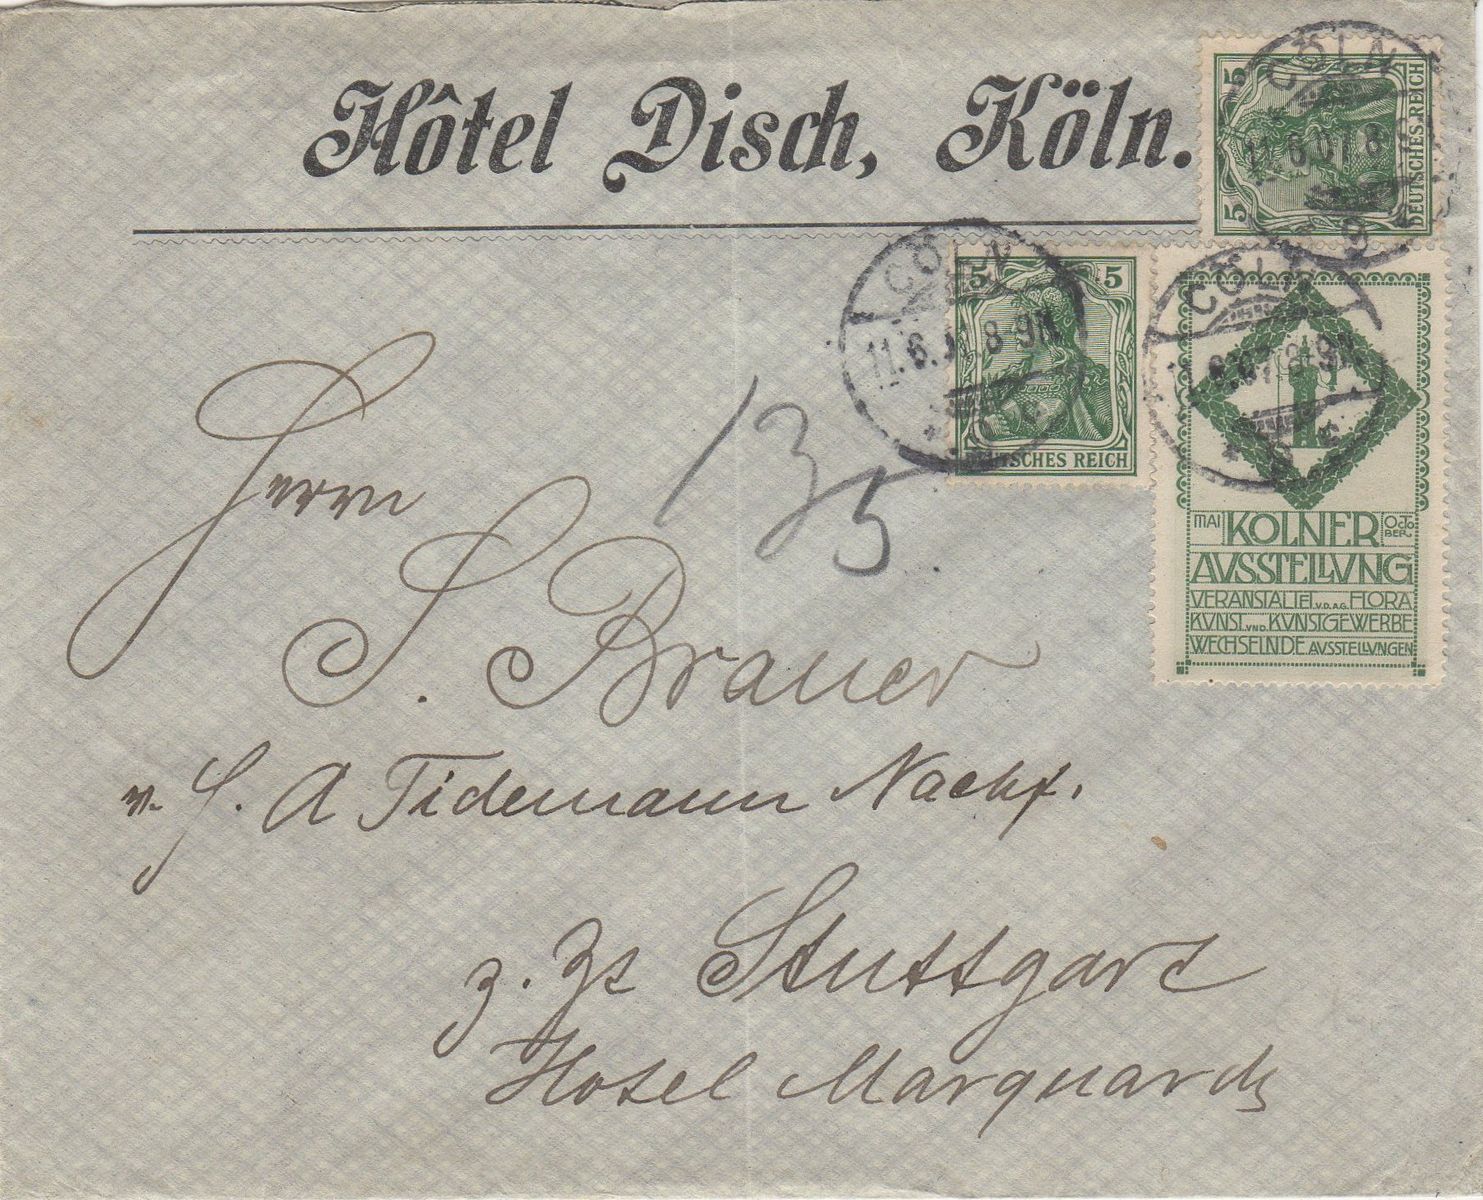 Hôtel Disch, Köln.
5 5
DEUTSCHES REICH
CÖLN
11.6.07 8
9
5 5
DEUTSCHES REICH
CÖLN
11.6. 8-9N
CÖLN
6.07.8-9N
MAI KÖLNER OCTOBER
AVSSTELLVNG
VERANSTALTET V.D.A.G. FLORA
KVNST VND KVNSTGEWERBE
WECHSELNDE AVSSTELLVNGEN
13
5
Herrn
S. Brauer
A Tidemann Nachf.
z. Zt Stuttgart
Hotel Marquardt